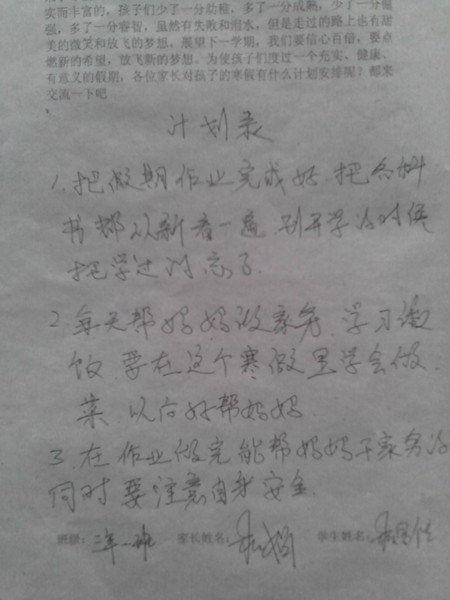 实而丰富的，孩子们少了一份幼稚，多了一分成熟，少了一分倔
强，多了一分睿智，虽然有失败和泪水，但是走过的路上也有甜
美的微笑和放飞的梦想。展望下一学期，我们要信心百倍，要点
燃新的希望，放飞新的梦想。为使孩子们度过一个充实、健康、
有意义的假期，各位家长对孩子的寒假有什么计划安排呢？都来
交流一下吧
计划表
1、把假期作业完成好，把各科
书都从新看一遍，别开学的时候
把学过的忘了。
2、每天帮妈妈做家务，学习做
饭，要在这个寒假里学会做
菜，以后好帮妈妈。
3 在作业做完能帮妈妈干家务的
同时要注意自身安全.
班级：三年一班 家长姓名： 学生姓名：